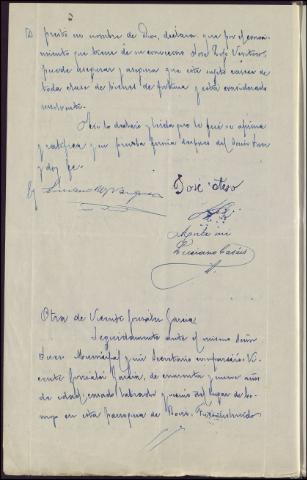 presto en nombre de Dios, declara que por el conoci-
miento que tiene de su convecino José
puede asegurar y asegura que este sujeto carece de
toda clase de bienes de fortuna y está considerado
insolvente.
Así lo declaró y leída que le fué se afirma
y ratifica y en prueba firma despues del Señor Juez
y doy fe.
José Otero
Ante mi
Luciano
Otra de Vicente González García
Seguidamente ante el mismo Señor
Juez Municipal y mi Secretario compareció Vi-
cente González García, de cuarenta y nueve años
de edad, casado labrador y vecino del lugar de
en esta parroquia de